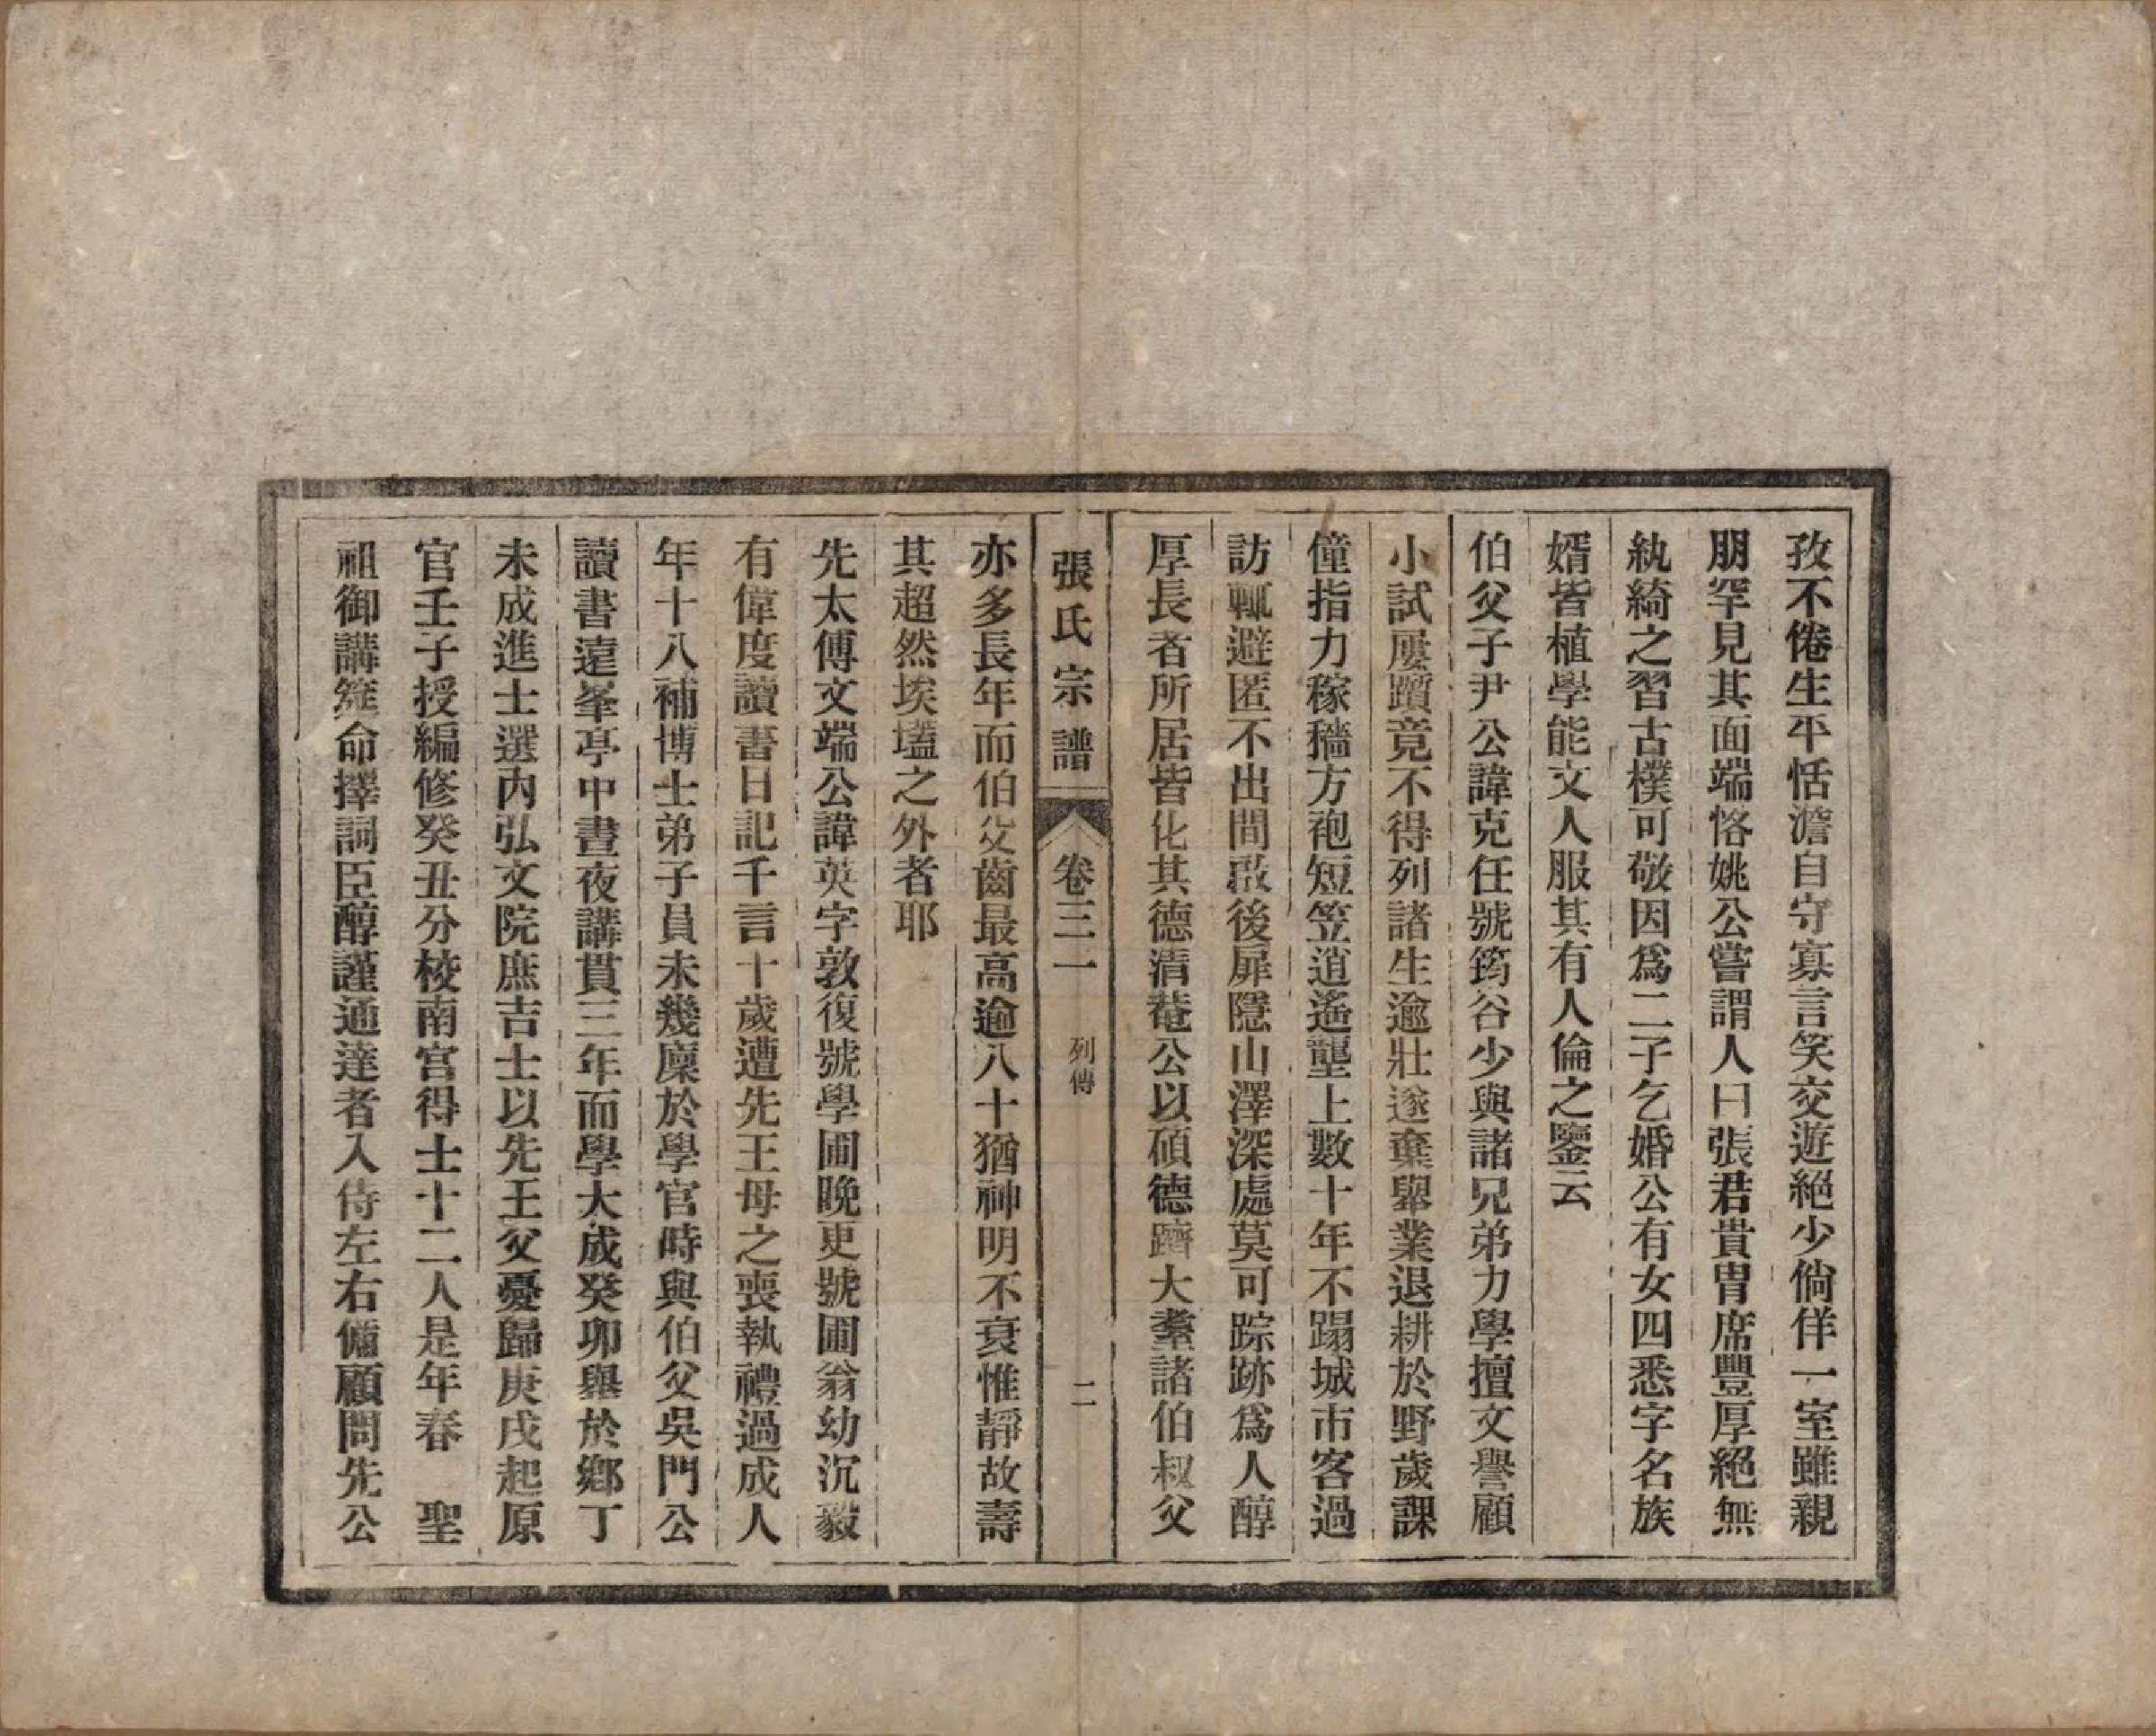 孜不倦生平恬澹自守寡言笑交遊絕少倘佯一室雖親
朋罕見其面端恪姚公嘗謂人曰張君貴冑席豐厚絕無
紈綺之習古樸可敬因爲二子乞婚公有女四悉字名族
婿皆植學能文人服其有人倫之鑒云
伯父子尹公諱克任號筠谷少與諸兄弟力學擅文譽顧
小試屢躓竟不得列諸生逾壯遂棄舉業退耕於野歲課
僮指力稼穡方袍短笠逍遙壟上數十年不蹋城市客過
訪輒避匿不出間啟後扉隱山澤深處莫可踪跡爲人醇
厚長者所居皆化其德清菴公以碩德躋大耋諸伯叔父
張氏宗譜 卷三一 列傳 二
亦多長年而伯父齒最高逾八十猶神明不衰惟靜故壽
其超然埃壒之外者耶
先太傅文端公諱英字敦復號學圃晚更號圃翁幼沉毅
有偉度讀書日記千言十歲遭先王母之喪執禮過成人
年十八補博士弟子員未幾廩於學官時與伯父吳門公
讀書遠峯亭中晝夜講貫三年而學大成癸卯舉於鄉丁
未成進士選內弘文院庶吉士以先王父憂歸庚戌起原
官壬子授編修癸丑分校南宮得士十二人是年春　聖
祖御講筵命擇詞臣醇謹通達者入侍左右備顧問先公